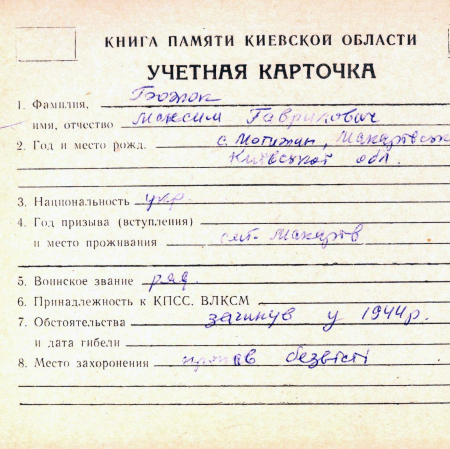 КНИГА ПАМЯТИ КИЕВСКОЙ ОБЛАСТИ
УЧЕТНАЯ КАРТОЧКА
1. Фамилия, Божок
имя, отчество Максим Гаврилович
2. Год и место рожд. с. Мотижин, Макарівськ
Київської обл.
3. Национальность укр.
4. Год призыва (вступления)
и место проживания смт. Макарів
5. Воинское звание ряд.
6. Принадлежность к КПСС. ВЛКСМ
7. Обстоятельства загинув у 1944 р.
и дата гибели
8. Место захоронения пропав безвісті